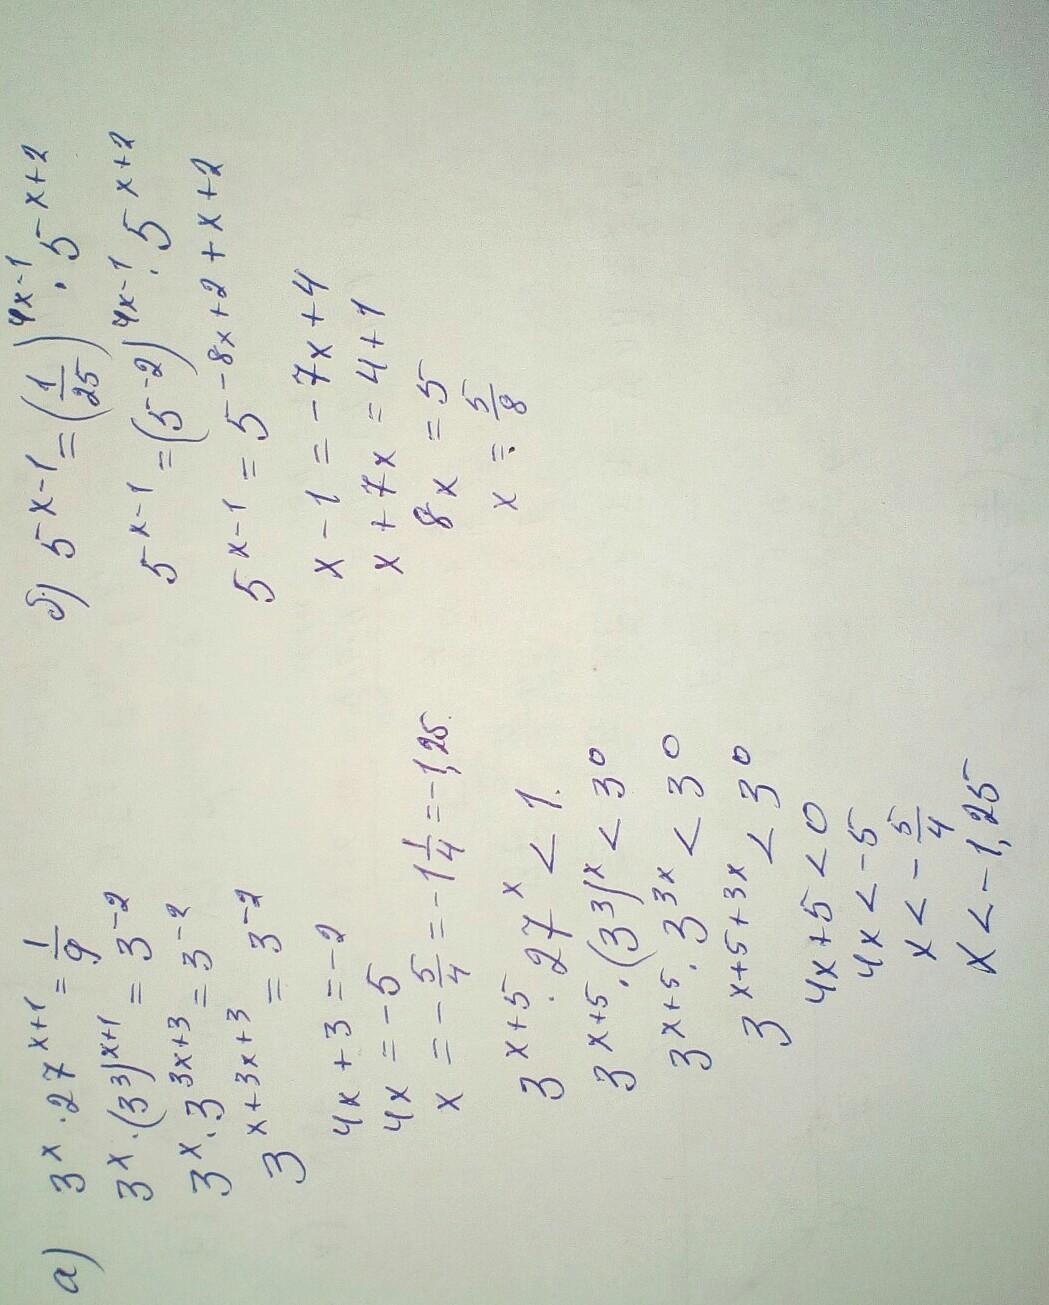 а) 3^x · 27^{x+1} = 1/9
3^x · (3^3)^{x+1} = 3^{-2}
3^x · 3^{3x+3} = 3^{-2}
3^{x+3x+3} = 3^{-2}
4x + 3 = -2
4x = -5
x = -5/4 = -1 1/4 = -1,25.
3^{x+5} · 27^x < 1.
3^{x+5} · (3^3)^x < 3^0
3^{x+5} · 3^{3x} < 3^0
3^{x+5+3x} < 3^0
4x + 5 < 0
4x < -5
x < -5/4
x < -1,25
б) 5^{x-1} = (1/25)^{4x-1} · 5^{x+2}
5^{x-1} = (5^{-2})^{4x-1} · 5^{x+2}
5^{x-1} = 5^{-8x+2+x+2}
x - 1 = -7x + 4
x + 7x = 4 + 1
8x = 5
x = 5/8